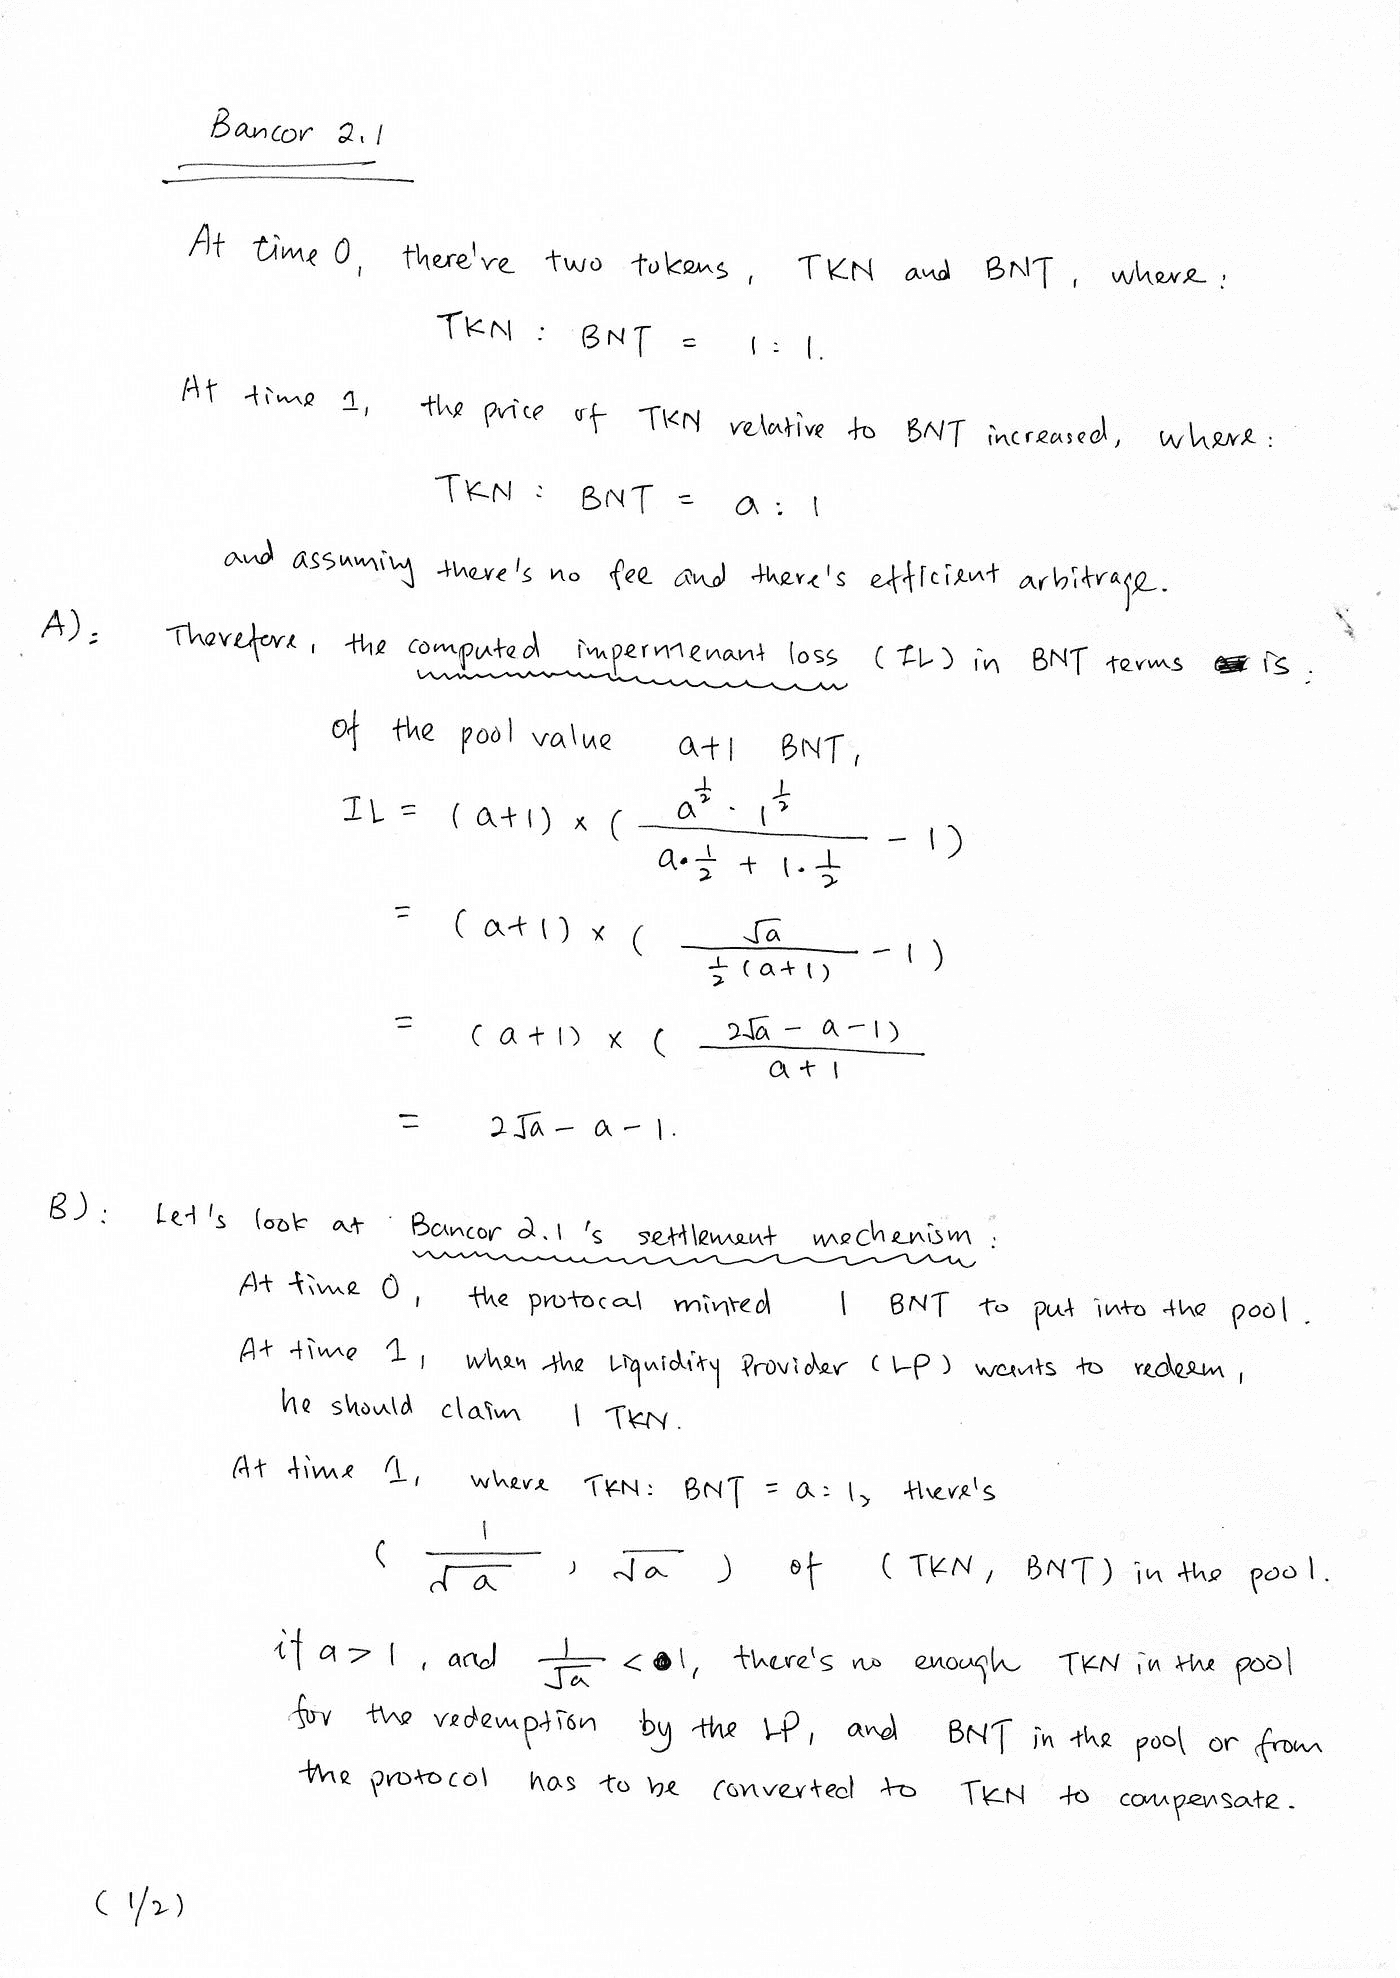 Bancor 2.1
At time 0, there've two tokens, TKN and BNT, where:
TKN : BNT = 1 : 1.
At time 1, the price of TKN relative to BNT increased, where:
TKN : BNT = a : 1
and assuming there's no fee and there's efficient arbitrage.
A): Therefore, the computed impermenant loss (IL) in BNT terms is:
of the pool value a+1 BNT,
IL = (a+1) × ( a^½ · 1^½ / (a·½ + 1·½) - 1)
= (a+1) × ( √a / ½(a+1) - 1)
= (a+1) × ( 2√a - a - 1) / a+1
= 2√a - a - 1.
B): Let's look at Bancor 2.1's settlement mechenism:
At time 0, the protocal minted 1 BNT to put into the pool.
At time 1, when the Liquidity Provider (LP) wants to redeem,
he should claim 1 TKN.
At time 1, where TKN: BNT = a:1, there's
( 1/√a , √a ) of (TKN, BNT) in the pool.
if a > 1, and 1/√a < 1, there's no enough TKN in the pool
for the redemption by the LP, and BNT in the pool or from
the protocol has to be converted to TKN to compensate.
(1/2)